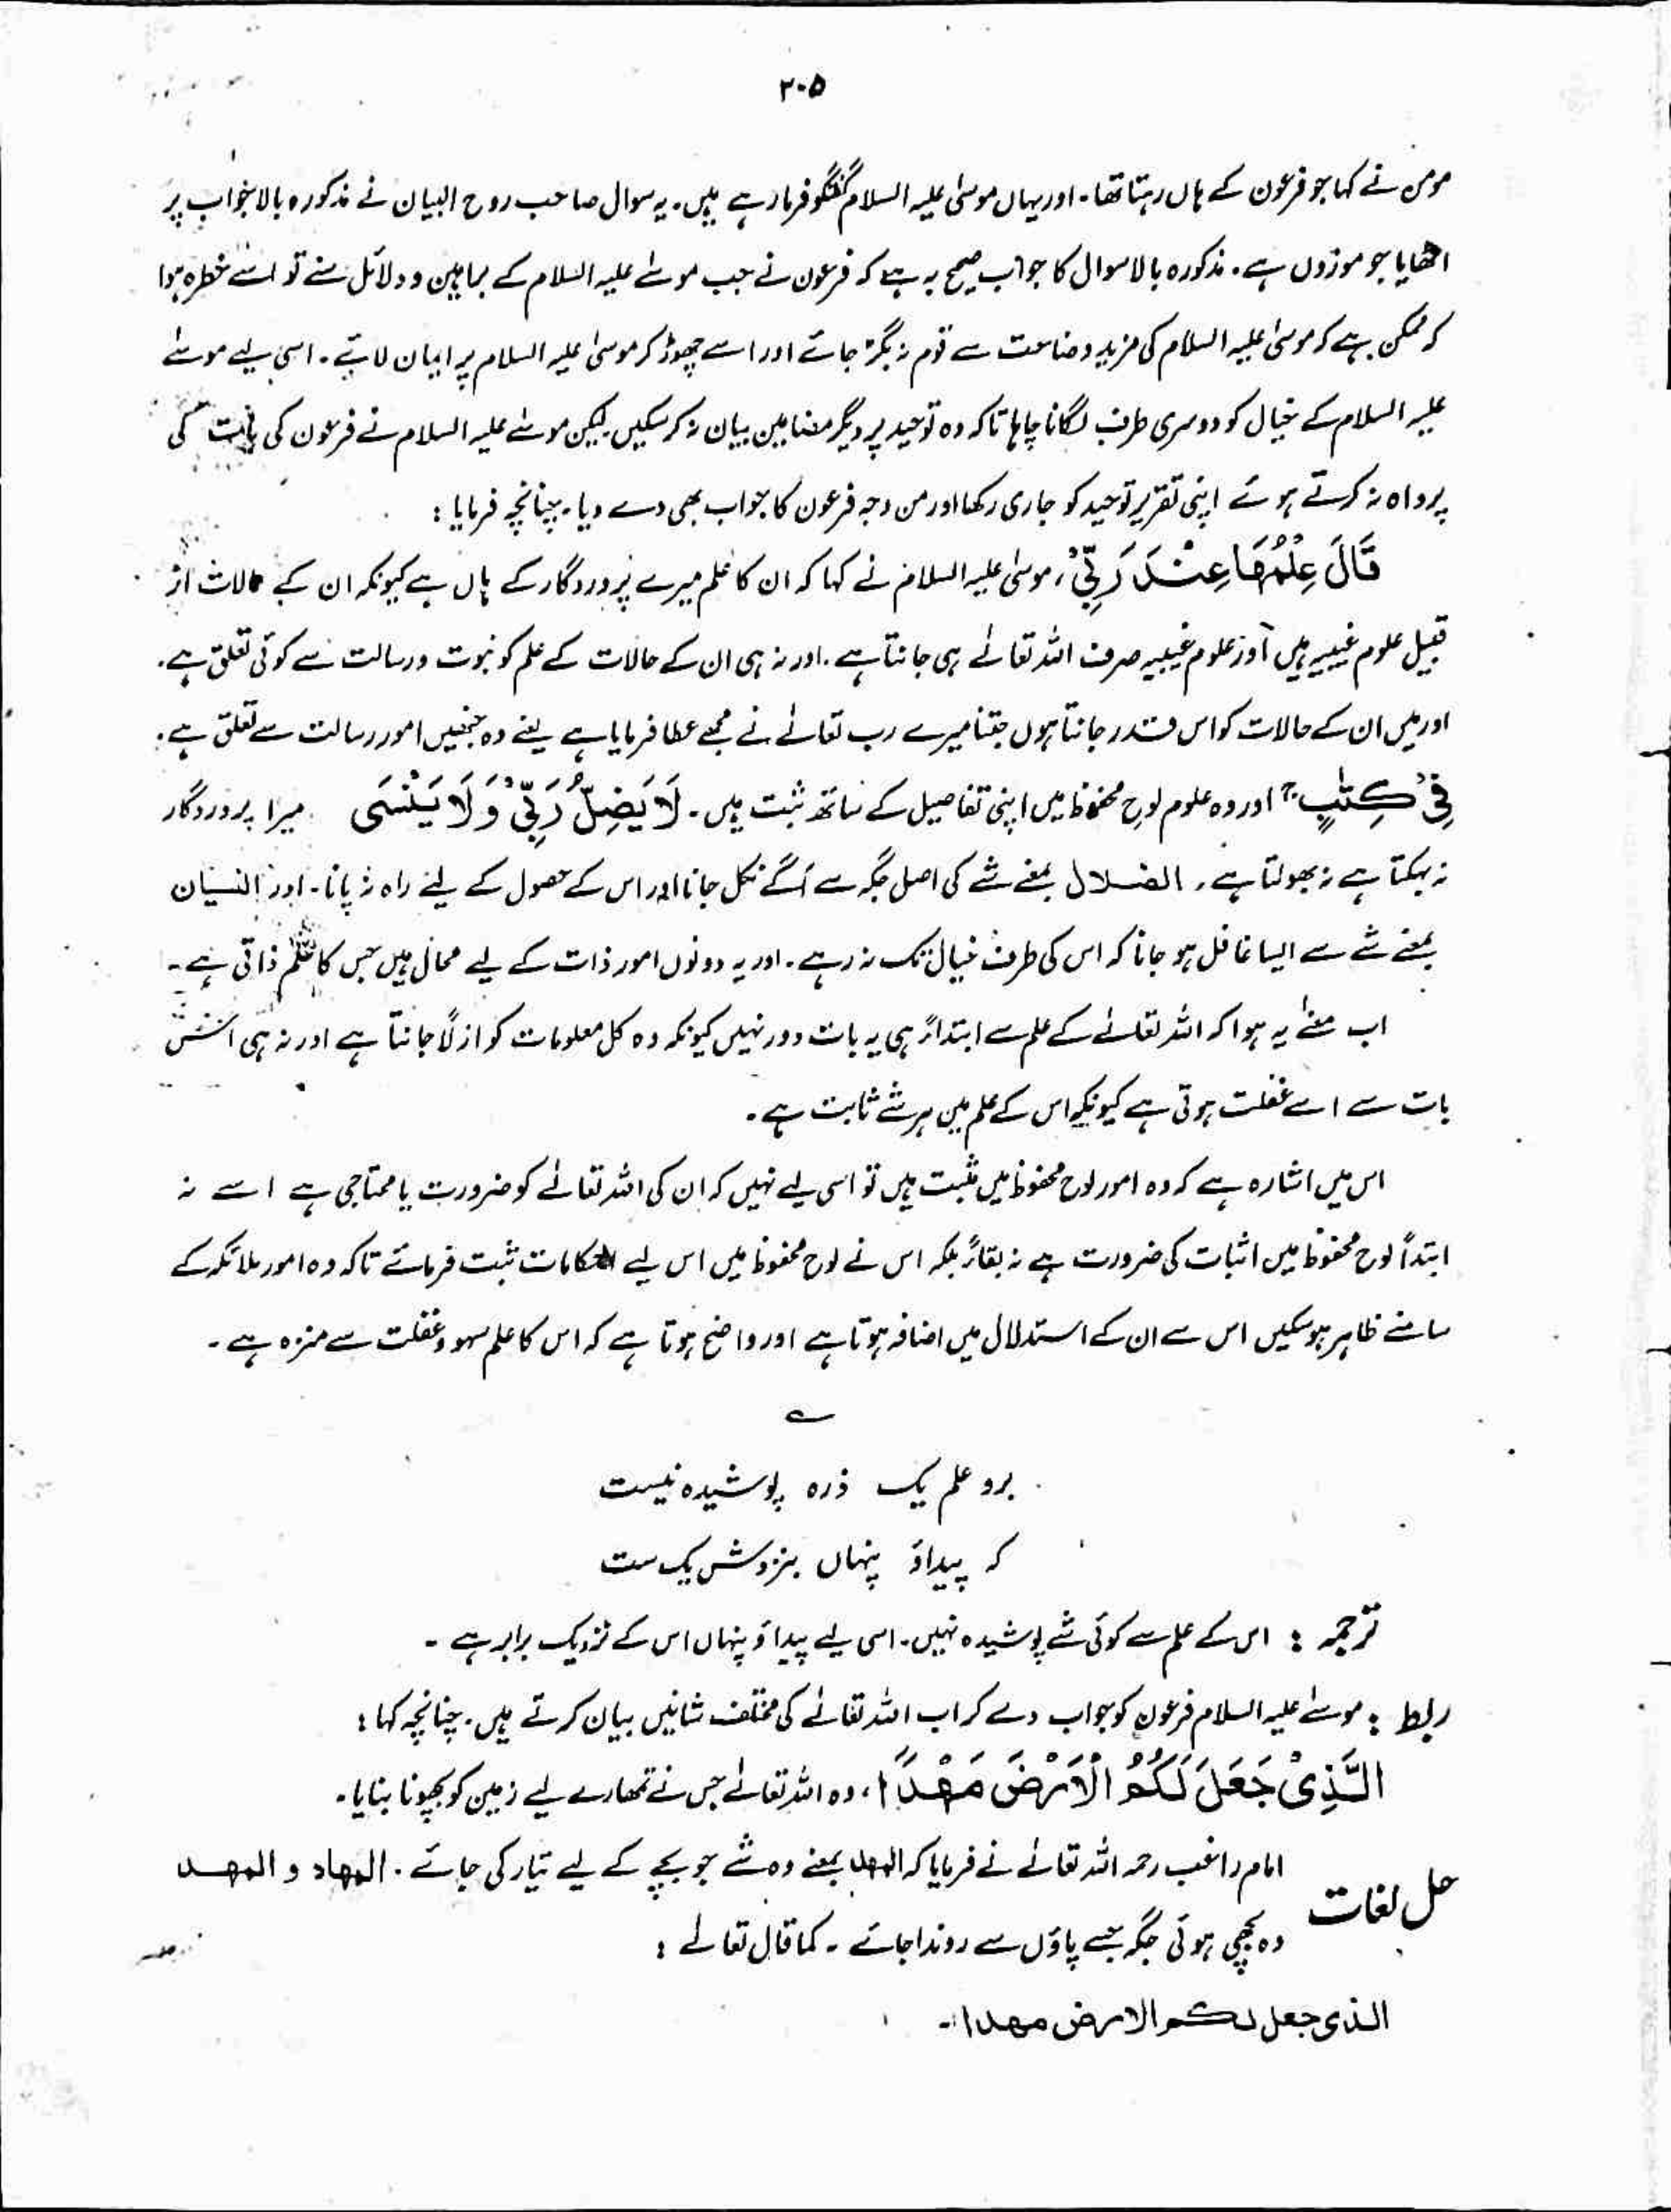 ۳۰۵
مومن نے کہا جو فرعون کے ہاں رہتا تھا۔ اور یہاں موسیٰ علیہ السلام گفتگو فرما رہے ہیں۔ یہ سوال صاحب روح البیان نے مذکورہ بالا جواب پر
اٹھایا جو موزوں ہے۔ مذکورہ بالا سوال کا جواب صحیح یہ ہے کہ فرعون نے جب موسےٰ علیہ السلام کے براہین و دلائل سنے تو اسے خطرہ ہوا
کہ ممکن ہے کہ موسیٰ علیہ السلام کی مزید وضاحت سے قوم نہ بگڑ جائے اور اسے چھوڑ کر موسیٰ علیہ السلام پر ایمان لائے۔ اسی لیے موسےٰ
علیہ السلام کے خیال کو دوسری طرف لگانا چاہا تاکہ وہ توحید پر دیگر مضامین بیان نہ کر سکیں لیکن موسےٰ علیہ السلام نے فرعون کی بات کی
پرواہ نہ کرتے ہوئے اپنی تقریر توحید کو جاری رکھا اور من وجہ فرعون کا جواب بھی دے دیا۔ چنانچہ فرمایا :
قَالَ عِلْمُهَا عِنْدَ رَبِّیْ ، موسیٰ علیہ السلام نے کہا کہ ان کا علم میرے پروردگار کے ہاں ہے کیونکہ ان کے حالات از
قبیل علوم غیبیہ ہیں اور علوم غیبیہ صرف اللہ تعالےٰ ہی جانتا ہے۔ اور نہ ہی ان کے حالات کے علم کو نبوت و رسالت سے کوئی تعلق ہے۔
اور میں ان کے حالات کو اس قدر جانتا ہوں جتنا میرے رب تعالےٰ نے مجھے عطا فرمایا ہے یعنے وہ جنھیں امور رسالت سے تعلق ہے۔
فِیْ كِتٰبٍ ج اور وہ علوم لوحِ محفوظ میں اپنی تفاصیل کے ساتھ ثبت ہیں۔ لَا یَضِلُّ رَبِّیْ وَلَا یَنْسَی میرا پروردگار
نہ بہکتا ہے نہ بھولتا ہے۔ الضلال بمعنے شے کی اصل جگہ سے آگے نکل جانا اور اس کے حصول کے لیے راہ نہ پانا۔ اور النسیان
بمعنے شے سے ایسا غافل ہو جانا کہ اس کی طرف خیال تک نہ رہے۔ اور یہ دونوں امور ذات کے لیے محال ہیں جس کا علم ذاتی ہے۔
اب معنےٰ یہ ہوا کہ اللہ تعالےٰ کے علم سے ابتداءً ہی یہ بات دور نہیں کیونکہ وہ کل معلومات کو ازلاً جانتا ہے اور نہ ہی اس
بات سے اسے غفلت ہوتی ہے کیونکہ اس کے علم میں ہر شے ثابت ہے۔
اس میں اشارہ ہے کہ وہ امور لوح محفوظ میں مثبت ہیں تو اسی لیے نہیں کہ ان کی اللہ تعالےٰ کو ضرورت یا محتاجی ہے اسے نہ
ابتداً لوح محفوظ میں اثبات کی ضرورت ہے نہ بقاءً بلکہ اس نے لوح محفوظ میں اس لیے احکامات ثبت فرمائے تاکہ وہ امور ملائکہ کے
سامنے ظاہر ہو سکیں اس سے ان کے استدلال میں اضافہ ہوتا ہے اور واضح ہوتا ہے کہ اس کا علم سہو و غفلت سے منزہ ہے۔
؎
برو علم یک ذرہ پوشیدہ نیست
کہ پیداؤ پنہاں بنزدش یک ست
ترجمہ : اس کے علم سے کوئی شے پوشیدہ نہیں۔ اسی لیے پیداؤ پنہاں اس کے نزدیک برابر ہے۔
ربط : موسےٰ علیہ السلام فرعون کو جواب دے کر اب اللہ تعالےٰ کی مختلف شانیں بیان کرتے ہیں۔ چنانچہ کہا :
الَّذِیْ جَعَلَ لَكُمُ الْاَرْضَ مَهْدًا ، وہ اللہ تعالےٰ جس نے تمھارے لیے زمین کو بچھونا بنایا۔
حل لغات امام راغب رحمہ اللہ تعالےٰ نے فرمایا کہ المهد بمعنے وہ شے جو بچے کے لیے تیار کی جائے۔ المهاد و المهد
وہ بچھی ہوئی جگہ جسے پاؤں سے روندا جائے۔ کما قال تعالےٰ :
الذی جعل لکم الارض مهدا۔